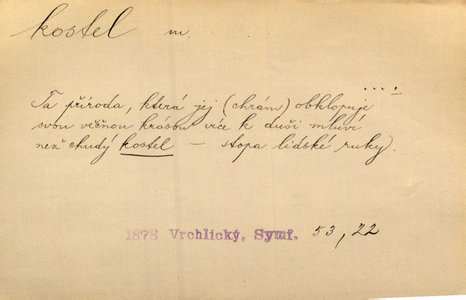 kostel m.
....
Ta příroda, která jej (chrám) obklopuje
svou věčnou krásou více k duši mluví
než chudý kostel – stopa lidské ruky).
1878 Vrchlický, Symf. 53, 22